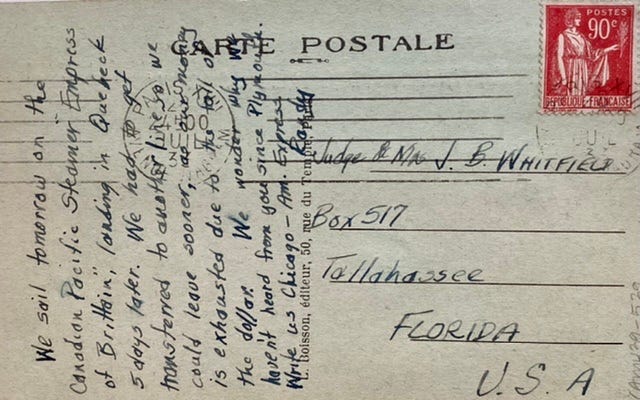 CARTE POSTALE
POSTES
90c
RÉPUBLIQUE FRANÇAISE
We sail tomorrow on the
Canadian Pacific Steamer "Empress
of Brittain", landing in Quebeck
5 days later. We had to get
transferred to another line so we
could leave sooner, as our money
is exhausted due to the fall of
the dollar. We wonder why we
havent heard from you since Plymouth.
Write us Chicago - Am. Express
Randy
L. Boisson, éditeur, 50, rue du Temple, Paris
Judge & Mrs J. B. WHITFIELD
Box 517
Tallahassee
FLORIDA
U.S.A